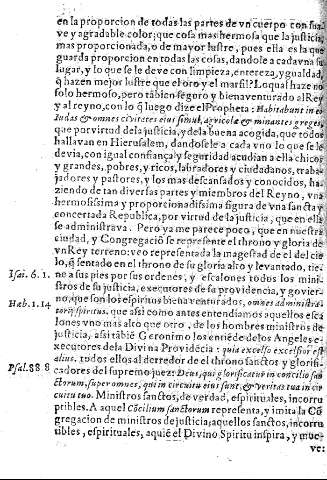 en la proporcion de todas las partes de vn cuerpo con sua-
ve y agradable color; que cosa mas hermosa que la justicia,
mas proporcionada, o de mayor lustre, pues ella es la que
guarda proporcion en todas las cosas, dandole a cada vna su
lugar, y lo que se le deve con limpieza, entereza, ygualdad,
q̃ hazen mejor lustre que el oro y el marfil? Lo qual haze no
solo hermoso, pero tãbien seguro y bienaventurado al Rey
y al reyno, con lo q̃ luego dize el Propheta: Habitabunt in ea
Iudas & omnes civitates eius simul, agricolæ & minantes greges,
que por virtud de la justicia, y de la buena acogida, que todos
hallavan en Hierusalem, dandosele a cada vno lo que se le
devia, con igual confiança y seguridad acudian a ella chicos
y grandes, pobres, y ricos, labradores y ciudadanos, traba-
jadores y pastores, y los mas descansados y conocidos, ha-
ziendo de tan diversas partes y miembros del Reyno, vna
hermosissima y proporcionadissima figura de vna sancta y
concertada Republica, por virtud de la justicia, que en ella
se administrava. Pero ya me parece poco, que en nuestra
ciudad, y Congregació se represente el throno y gloria de
vn Rey terreno: veo representada la magestad de el del cie
lo, q̃ sentado en el throno de su gloria alto y levantado, tie-
Isai. 6. 1. ne a sus pies por sus ordenes, y escalones todos los mini-
stros de su justicia, executores de su providencia, y govier-
Hab. 1. 14 no, que son los espiritus bienaventurados, omnes administra-
torij spiritus. que assi como antes entendiamos aquellos esca
lones vno mas alto que otro, de los hombres ministros de
justicia, assi tãbié Geronimo los entiéde de los Angeles e-
xecutores de la Divina Providécia: quia excelso excelsior est
Psal. 88 8 alius. todos ellos al derredor de el throno sancto y glorifi-
cadores del supremo juez: Deus, qui glorificatur in concilio san
ctorum, super omnes, qui in circuitu eius sunt, & veritas tua in cir
cuitu tuo. Ministros sanctos, de verdad, espirituales, incorru
ptibles. A aquel Cõcilium sanctorum representa, y imita la Cõ
gregacion de ministros de justicia; aquellos sanctos, incorru
tibles, espirituales, aquié el Divino Spiritu inspira, y mue-
ve: